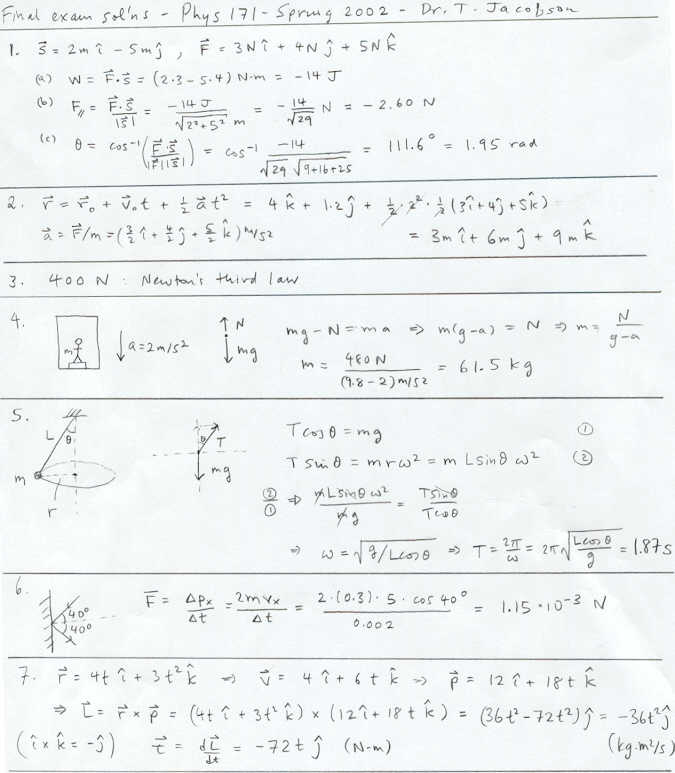 Final exam sol'ns - Phys 171 - Spring 2002 - Dr. T. Jacobson
1. s⃗ = 2m î - 5m ĵ , F⃗ = 3N î + 4N ĵ + 5N k̂
(a) W = F⃗·s⃗ = (2·3 - 5·4) N·m = -14 J
(b) F∥ = F⃗·s⃗/|s⃗| = -14 J/√(2²+5²) m = -14/√29 N = -2.60 N
(c) θ = cos⁻¹(F⃗·s⃗/|F⃗||s⃗|) = cos⁻¹ -14/(√29 √(9+16+25)) = 111.6° = 1.95 rad
2. r⃗ = r⃗₀ + v⃗₀t + ½ a⃗t² = 4 k̂ + 1·2 ĵ + ½·2²·½(3î+4ĵ+5k̂)
a⃗ = F⃗/m = (3/2 î + 4/2 ĵ + 5/2 k̂) m/s² = 3m î + 6m ĵ + 9m k̂
3. 400 N : Newton's third law
4. m a = 2m/s² N mg mg - N = ma ⇒ m(g-a) = N ⇒ m = N/(g-a)
m = 480 N/(9.8-2) m/s² = 61.5 kg
5. L θ m r θ T mg
T cos θ = mg ①
T sin θ = mrω² = m L sin θ ω² ②
②/① ⇒ mL sin θ ω²/mg = T sin θ/T cos θ
⇒ ω = √(g/L cos θ) ⇒ T = 2π/ω = 2π √(L cos θ/g) = 1.87 s
6. 40° 40° F̅ = Δpₓ/Δt = 2mvₓ/Δt = 2·(0.3)·5·cos 40°/0.002 = 1.15·10⁻³ N
7. r⃗ = 4t î + 3t² k̂ ⇒ v⃗ = 4 î + 6t k̂ ⇒ p⃗ = 12 î + 18t k̂
⇒ L⃗ = r⃗ × p⃗ = (4t î + 3t² k̂) × (12 î + 18t k̂) = (36t² - 72t²) ĵ = -36t² ĵ
(î × k̂ = -ĵ) τ⃗ = dL⃗/dt = -72t ĵ (N-m) (kg·m²/s)